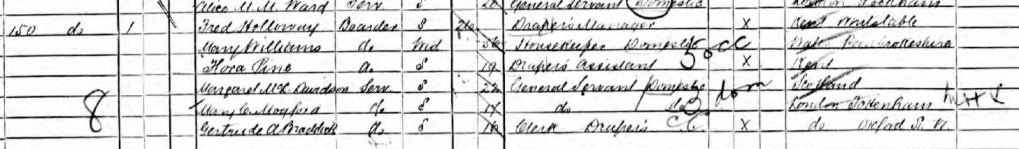 Alice M. M. Ward Serv. S General Servant Domestic London
150 do 1 Fred Holloway Boarder S 26 Drapers Manager X Kent
Mary Williams do Wid Housekeeper Domestic 50 CC Wales Pembrokeshire
Flora Pine do S 19 Drapers Assistant X Kent
Margaret Mc Davidson Serv. S 22 General Servant Domestic dom Scotland
8 Mary C do S 17 do do London Tottenham
Gertrude A Braddick do S Clerk Drapers C.C. X do Oxford St.